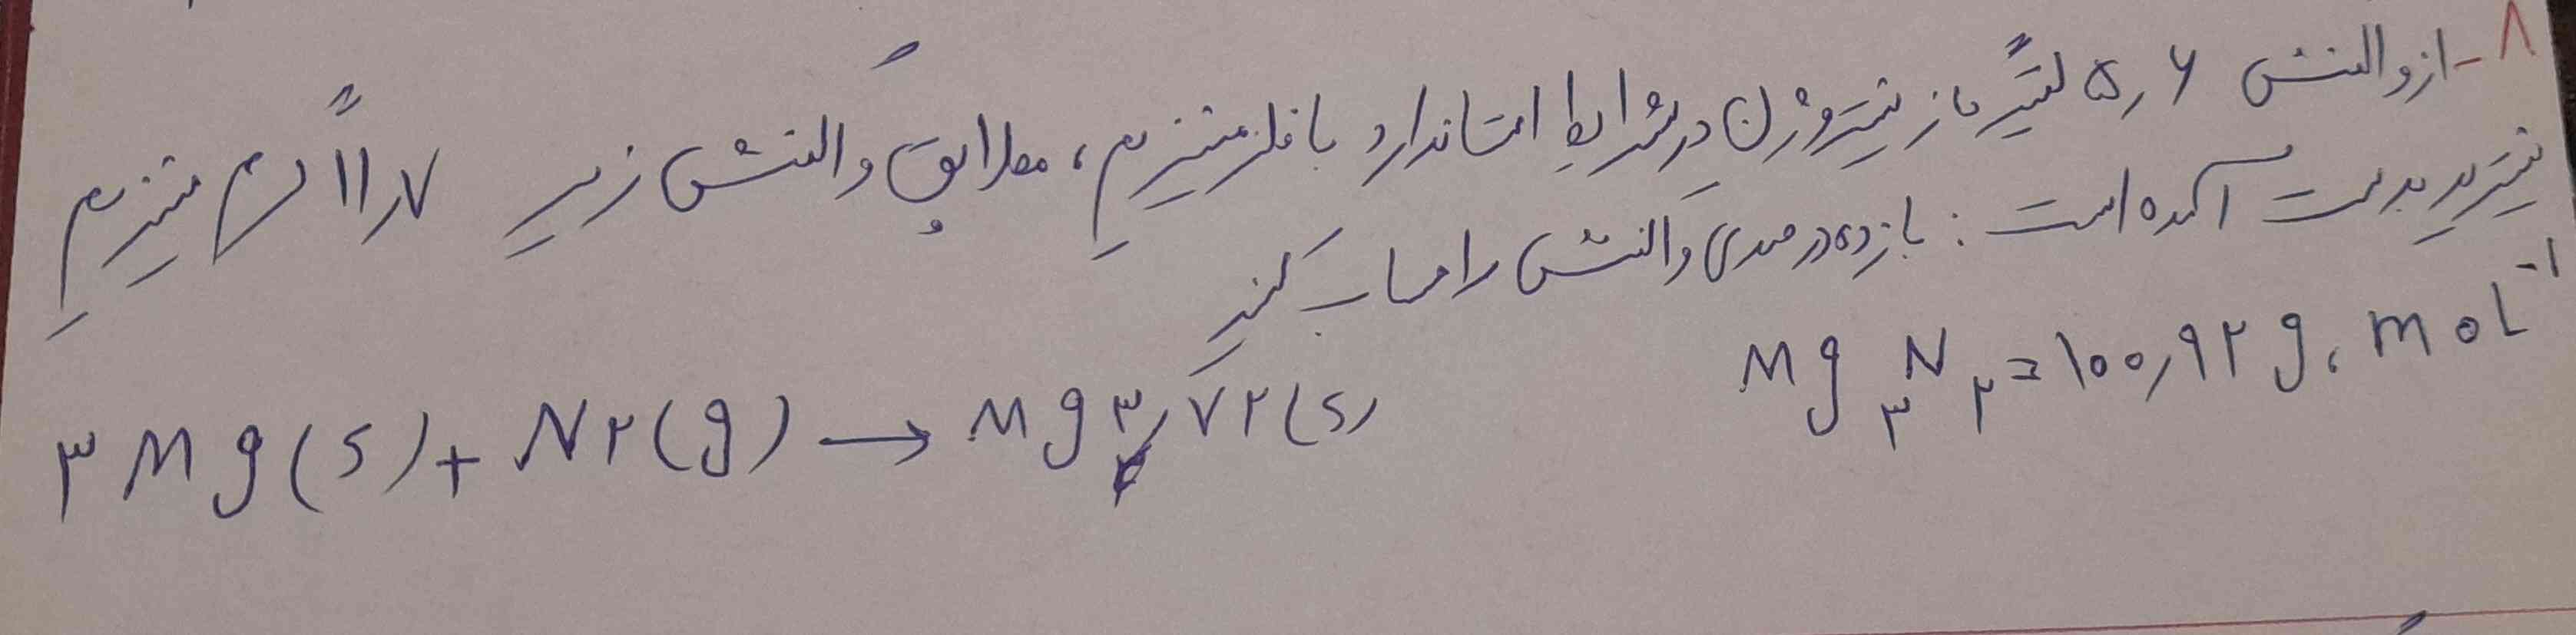 ۸- از واکنش ۵٫۶ لیتر گاز نیتروژن در شرایط استاندارد با فلز منیزیم، مطابق واکنش زیر ۱۱٫۷ گرم منیزیم
نیترید بدست آمده است: بازده درصدی واکنش را حساب کنید
Mg۳N۲=۱۰۰٫۹۲g. mol⁻¹
۳Mg(s)+N۲(g)→Mg۳N۲(s)